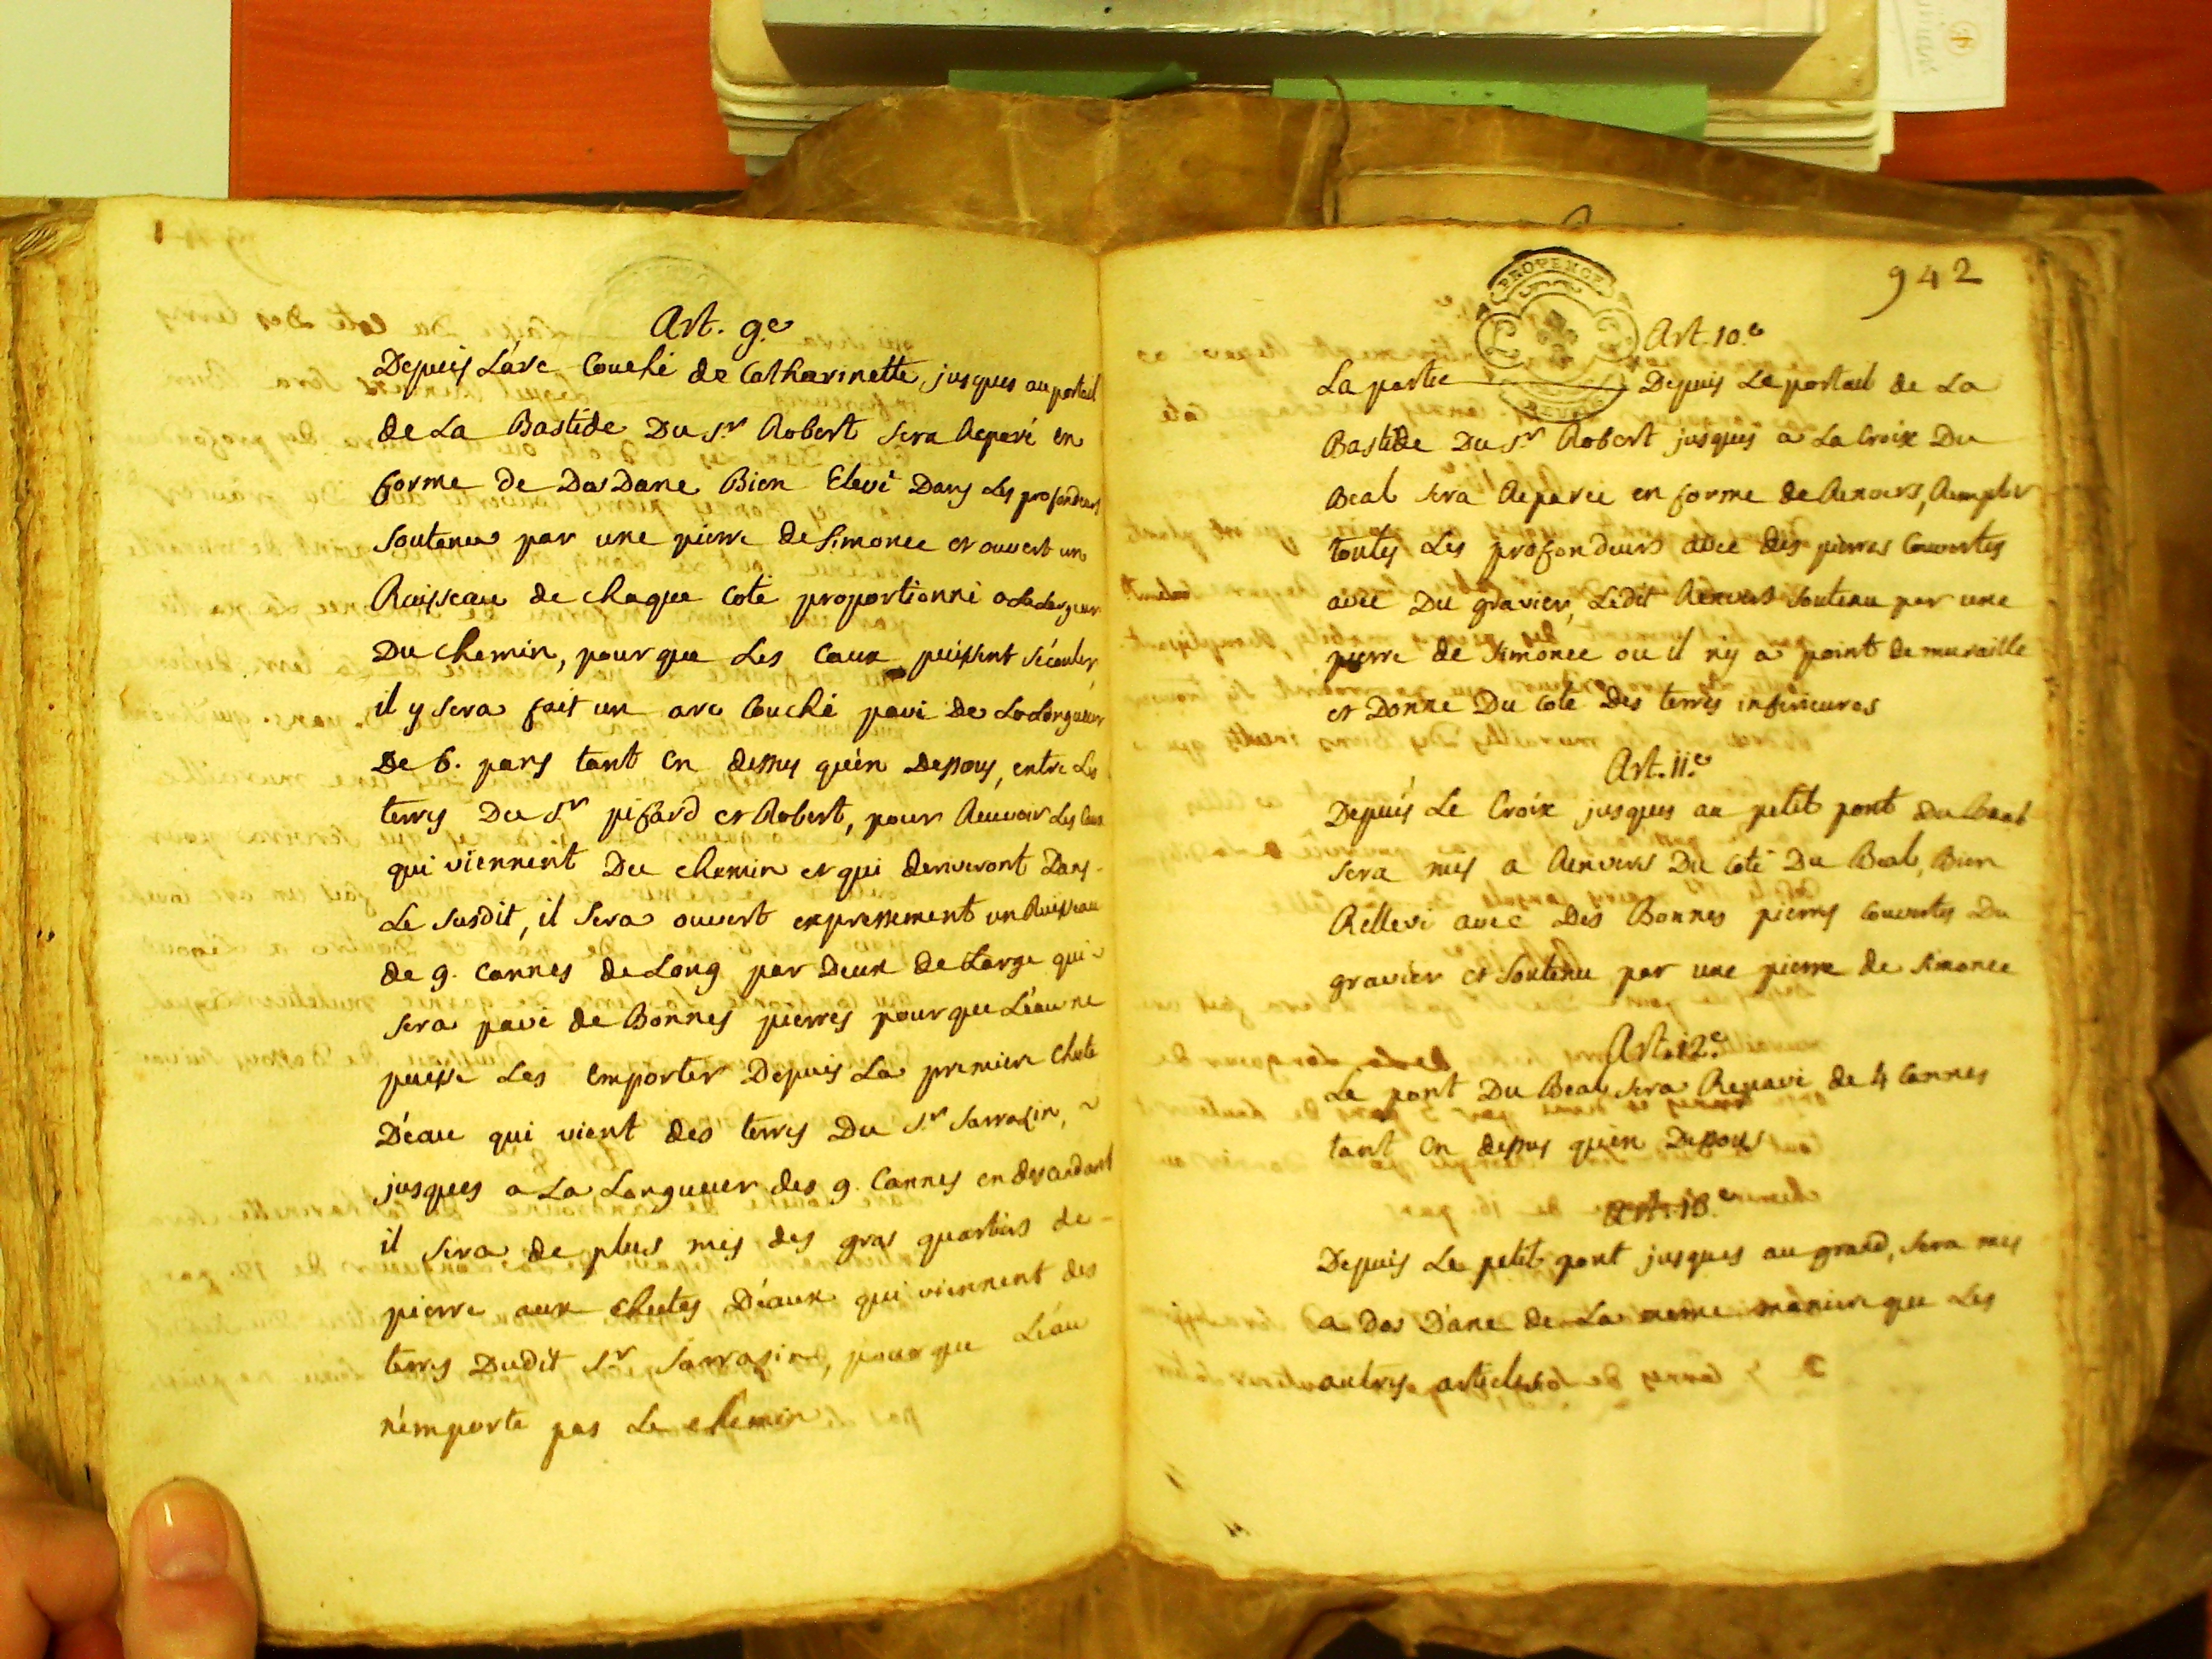 Art. 9.e
Depuis L'arc Couché de Catharinette, jusques au portail
de La Bastide Du S.r Robert sera Reparé en
forme de Dos Dane Bien Elevé Dans Les profondeurs
Soutenu par une pierre de Simonee et ouvert un
Ruisseau de chaque Coté proportionné a La Largeur
Du chemin, pour que Les Eaux puissent s'écouler,
il y sera fait un arc Couché pavé De La Longueur
De 6. pans tant En dessus qu'en Dessous, entre Les
terres Du S.r pifard et Robert, pour Recevoir Les Eaux
qui viennent Du chemin et qui deriveront Dans
Le susdit, il Sera ouvert expressement un Ruisseau
de 9. Cannes de Long par Deux de Large qui
sera pavé de Bonnes pierres pour que L'eau ne
puisse Les Emporter Depuis La premiere chute
D'eau qui vient des terres Du S.r Sarrasin,
jusques a La Longueur des 9. Cannes en descendant
il sera de plus mis des gros quartiers de
pierre aux chutes D'eaux qui viennent des
terres Dudit S.r Sarrasin, pour que L'eau
n'emporte pas Le chemin
942
PROVENCE
Art. 10.e
La partie Depuis Le portail de La
Bastide Du S.r Robert jusques a La Croix Du
Beal sera Reparée en forme de Renvers, Remplir
toutes Les profondeurs avec des pierres Couvertes
avec Du gravier, Ledit Renvers Soutenu par une
pierre de Simonee ou il n'y a point de muraille
et Donne Du Coté Des terres inferieures
Art. 11.e
Depuis Le Croix jusques au petit pont du Beal
Sera mis a Renvers Du Coté Du Beal, Bien
Rellevé avec Des Bonnes pierres Couvertes Du
gravier et Soutenu par une pierre de Simonee
Art. 12.e
Le pont Du Beal sera Repavé de 4 Cannes
tant En dessus qu'en Dessous
Depuis Le petit pont jusques au grand, sera mis
a Dos D'ane de La meme maniere que Les
autres articles